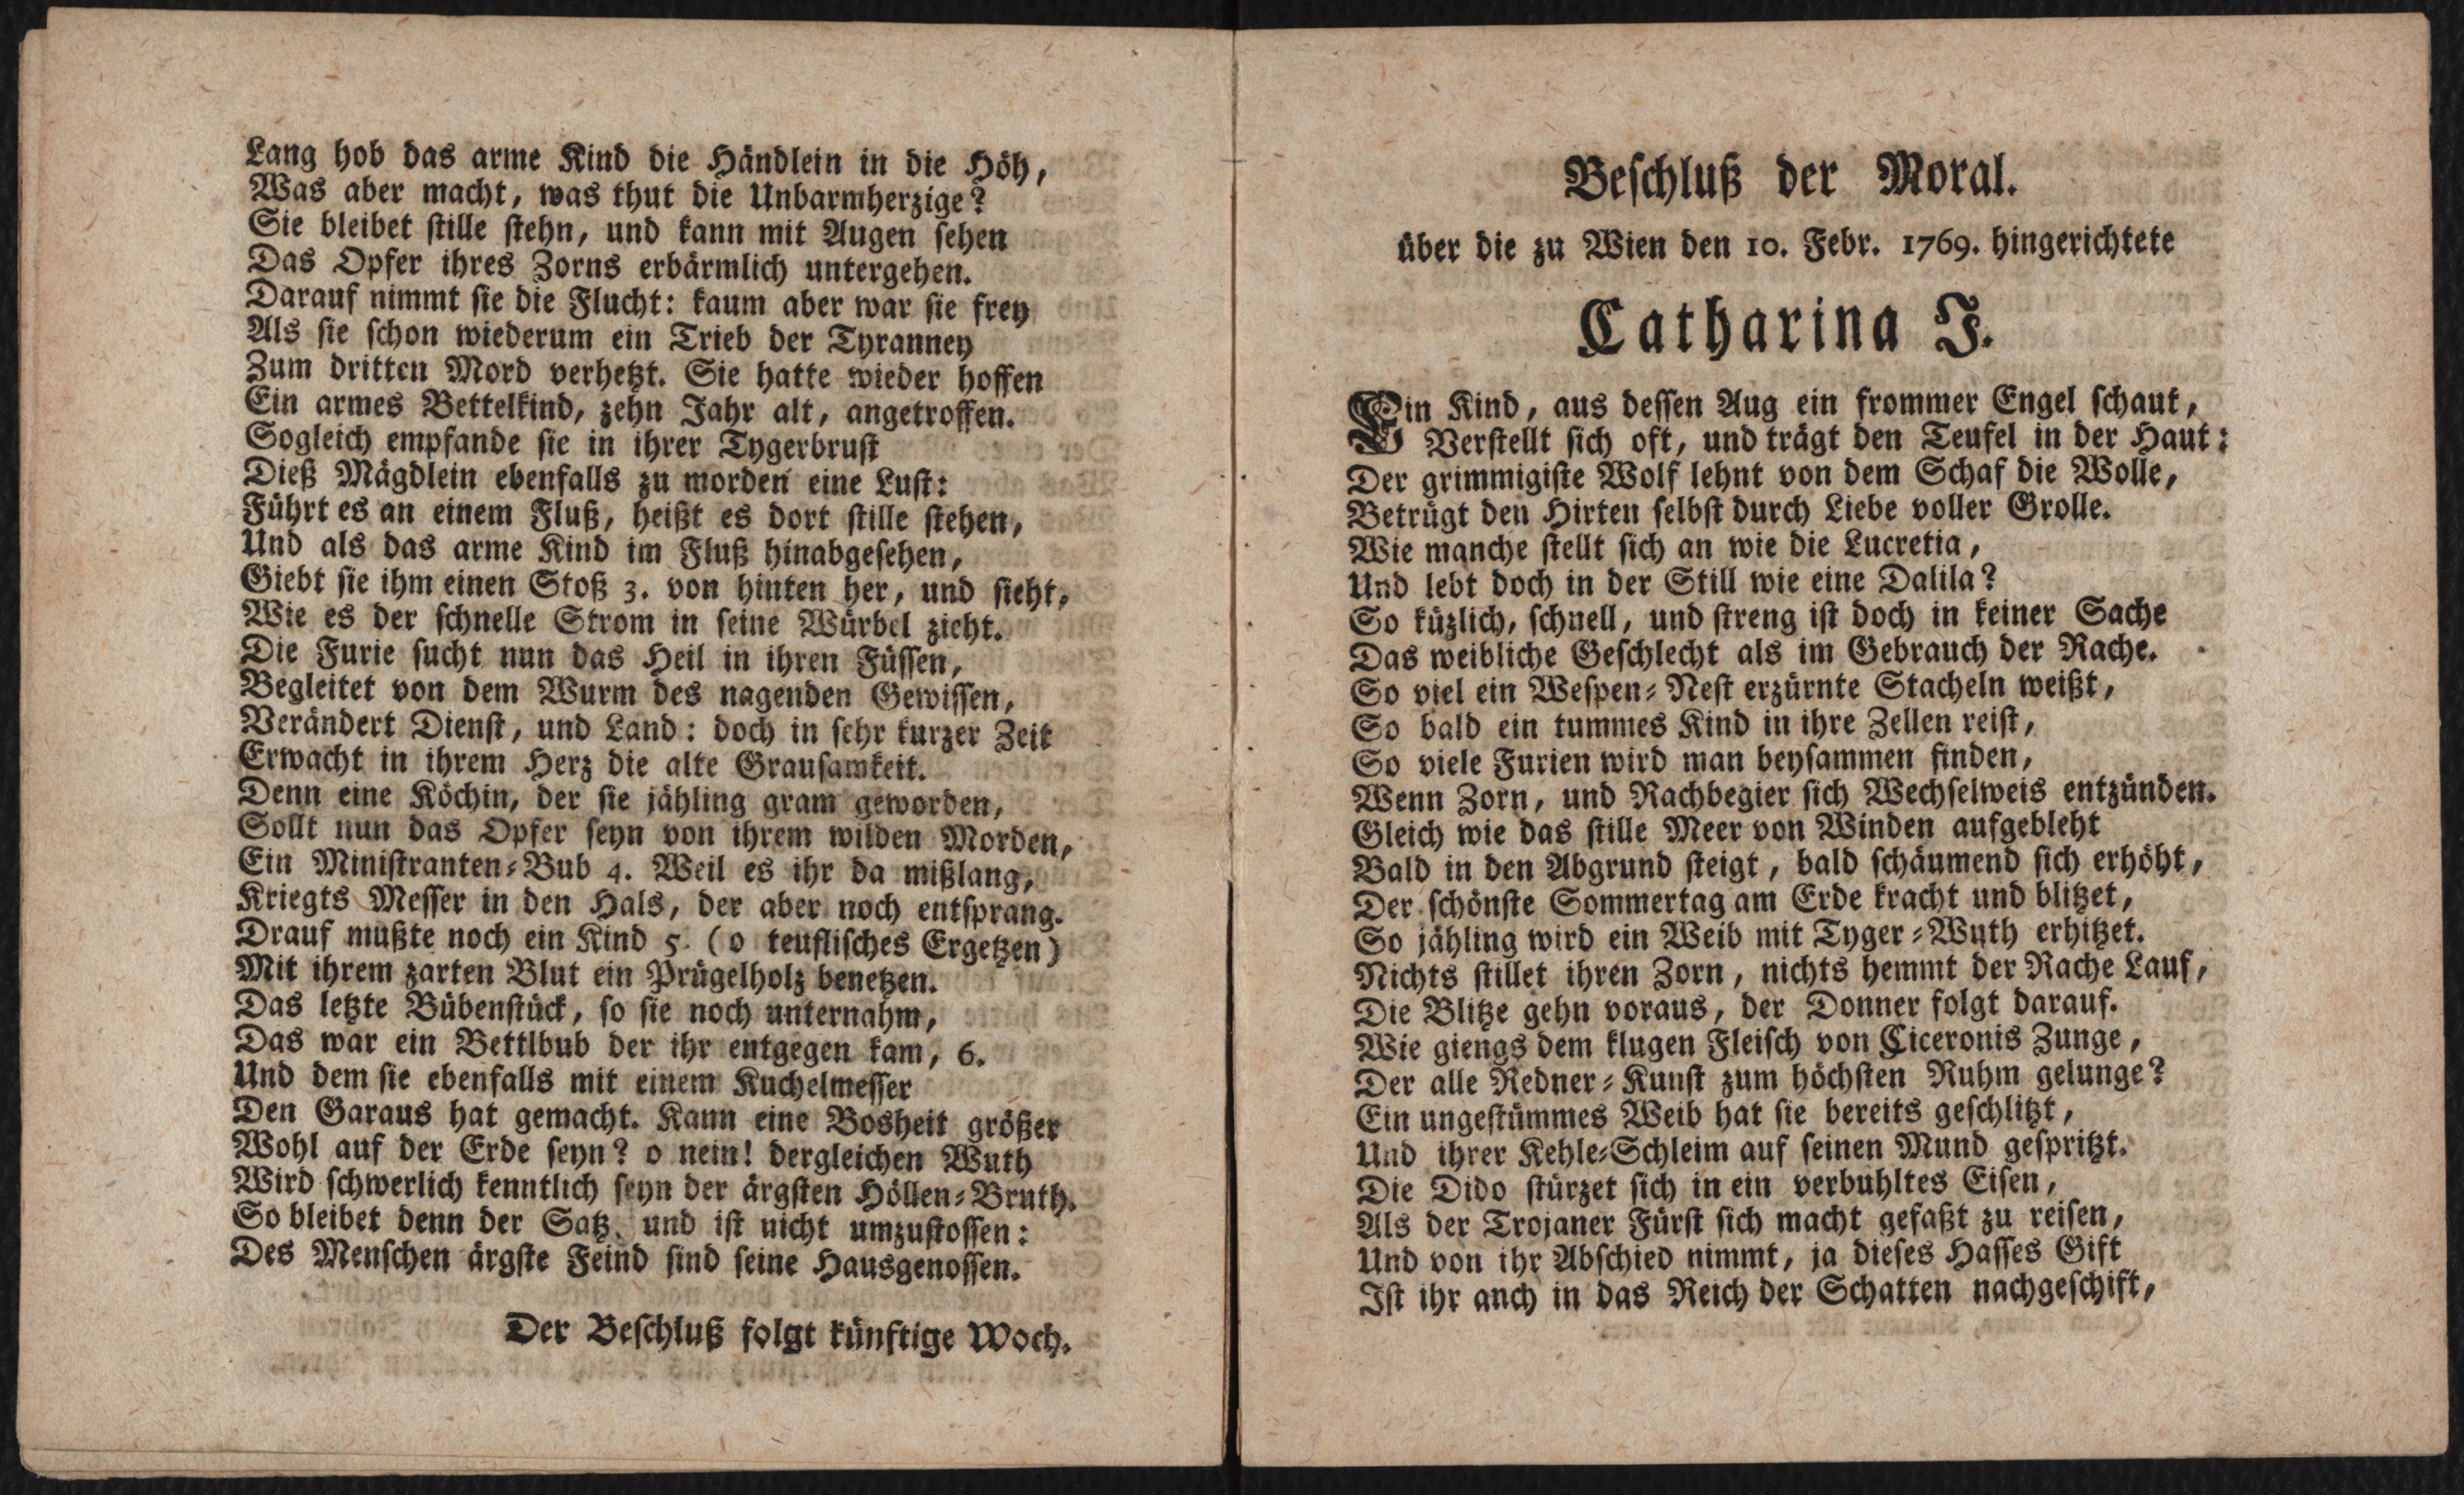 Lang hob das arme Kind die Händlein in die Höh,
Was aber macht, was thut die Unbarmherzige?
Sie bleibet stille stehn, und kann mit Augen sehen
Das Opfer ihres Zorns erbärmlich untergehen.
Darauf nimmt sie die Flucht: kaum aber war sie frey
Als sie schon wiederum ein Trieb der Tyranney
Zum dritten Mord verhetzt. Sie hatte wieder hoffen
Ein armes Bettelkind, zehn Jahr alt, angetroffen.
Sogleich empfande sie in ihrer Tygerbrust
Dieß Mägdlein ebenfalls zu morden eine Lust:
Führt es an einem Fluß, heißt es dort stille stehen,
Und als das arme Kind im Fluß hinabgesehen,
Giebt sie ihm einen Stoß 3. von hinten her, und sieht,
Wie es der schnelle Strom in seine Würbel zieht.
Die Furie sucht nun das Heil in ihren Füssen,
Begleitet von dem Wurm des nagenden Gewissen,
Verändert Dienst, und Land: doch in sehr kurzer Zeit
Erwacht in ihrem Herz die alte Grausamkeit.
Denn eine Köchin, der sie jähling gram geworden,
Sollt nun das Opfer seyn von ihrem wilden Morden,
Ein Ministranten-Bub 4. Weil es ihr da mißlang,
Kriegts Messer in den Hals, der aber noch entsprang.
Drauf mußte noch ein Kind 5. (o teuflisches Ergetzen)
Mit ihrem zarten Blut ein Prügelholz benetzen.
Das letzte Bübenstück, so sie noch unternahm,
Das war ein Bettlbub der ihr entgegen kam, 6.
Und dem sie ebenfalls mit einem Kuchelmesser
Den Garaus hat gemacht. Kann eine Bosheit größer
Wohl auf der Erde seyn? o nein! dergleichen Wuth
Wird schwerlich kenntlich seyn der ärgsten Höllen-Bruth.
So bleibet denn der Satz, und ist nicht umzustossen:
Des Menschen ärgste Feind sind seine Hausgenossen.
Der Beschluß folgt künftige Woch.
Beschluß der Moral.
über die zu Wien den 10. Febr. 1769. hingerichtete
Catharina J.
Ein Kind, aus dessen Aug ein frommer Engel schaut,
Verstellt sich oft, und trägt den Teufel in der Haut:
Der grimmigiste Wolf lehnt von dem Schaf die Wolle,
Betrügt den Hirten selbst durch Liebe voller Grolle.
Wie manche stellt sich an wie die Lucretia,
Und lebt doch in der Still wie eine Dalila?
So küzlich, schnell, und streng ist doch in keiner Sache
Das weibliche Geschlecht als im Gebrauch der Rache.
So viel ein Wespen-Nest erzürnte Stacheln weißt,
So bald ein tummes Kind in ihre Zellen reist,
So viele Furien wird man beysammen finden,
Wenn Zorn, und Rachbegier sich Wechselweis entzünden.
Gleich wie das stille Meer von Winden aufgebleht
Bald in den Abgrund steigt, bald schäumend sich erhöht,
Der schönste Sommertag am Erde kracht und blitzet,
So jähling wird ein Weib mit Tyger-Wuth erhitzet.
Nichts stillet ihren Zorn, nichts hemmt der Rache Lauf,
Die Blitze gehn voraus, der Donner folgt darauf.
Wie giengs dem klugen Fleisch von Ciceronis Zunge,
Der alle Redner-Kunst zum höchsten Ruhm gelunge?
Ein ungestümmes Weib hat sie bereits geschlitzt,
Und ihrer Kehle-Schleim auf seinen Mund gespritzt.
Die Dido stürzet sich in ein verbuhltes Eisen,
Als der Trojaner Fürst sich macht gefaßt zu reisen,
Und von ihr Abschied nimmt, ja dieses Hasses Gift
Ist ihr anch in das Reich der Schatten nachgeschift,